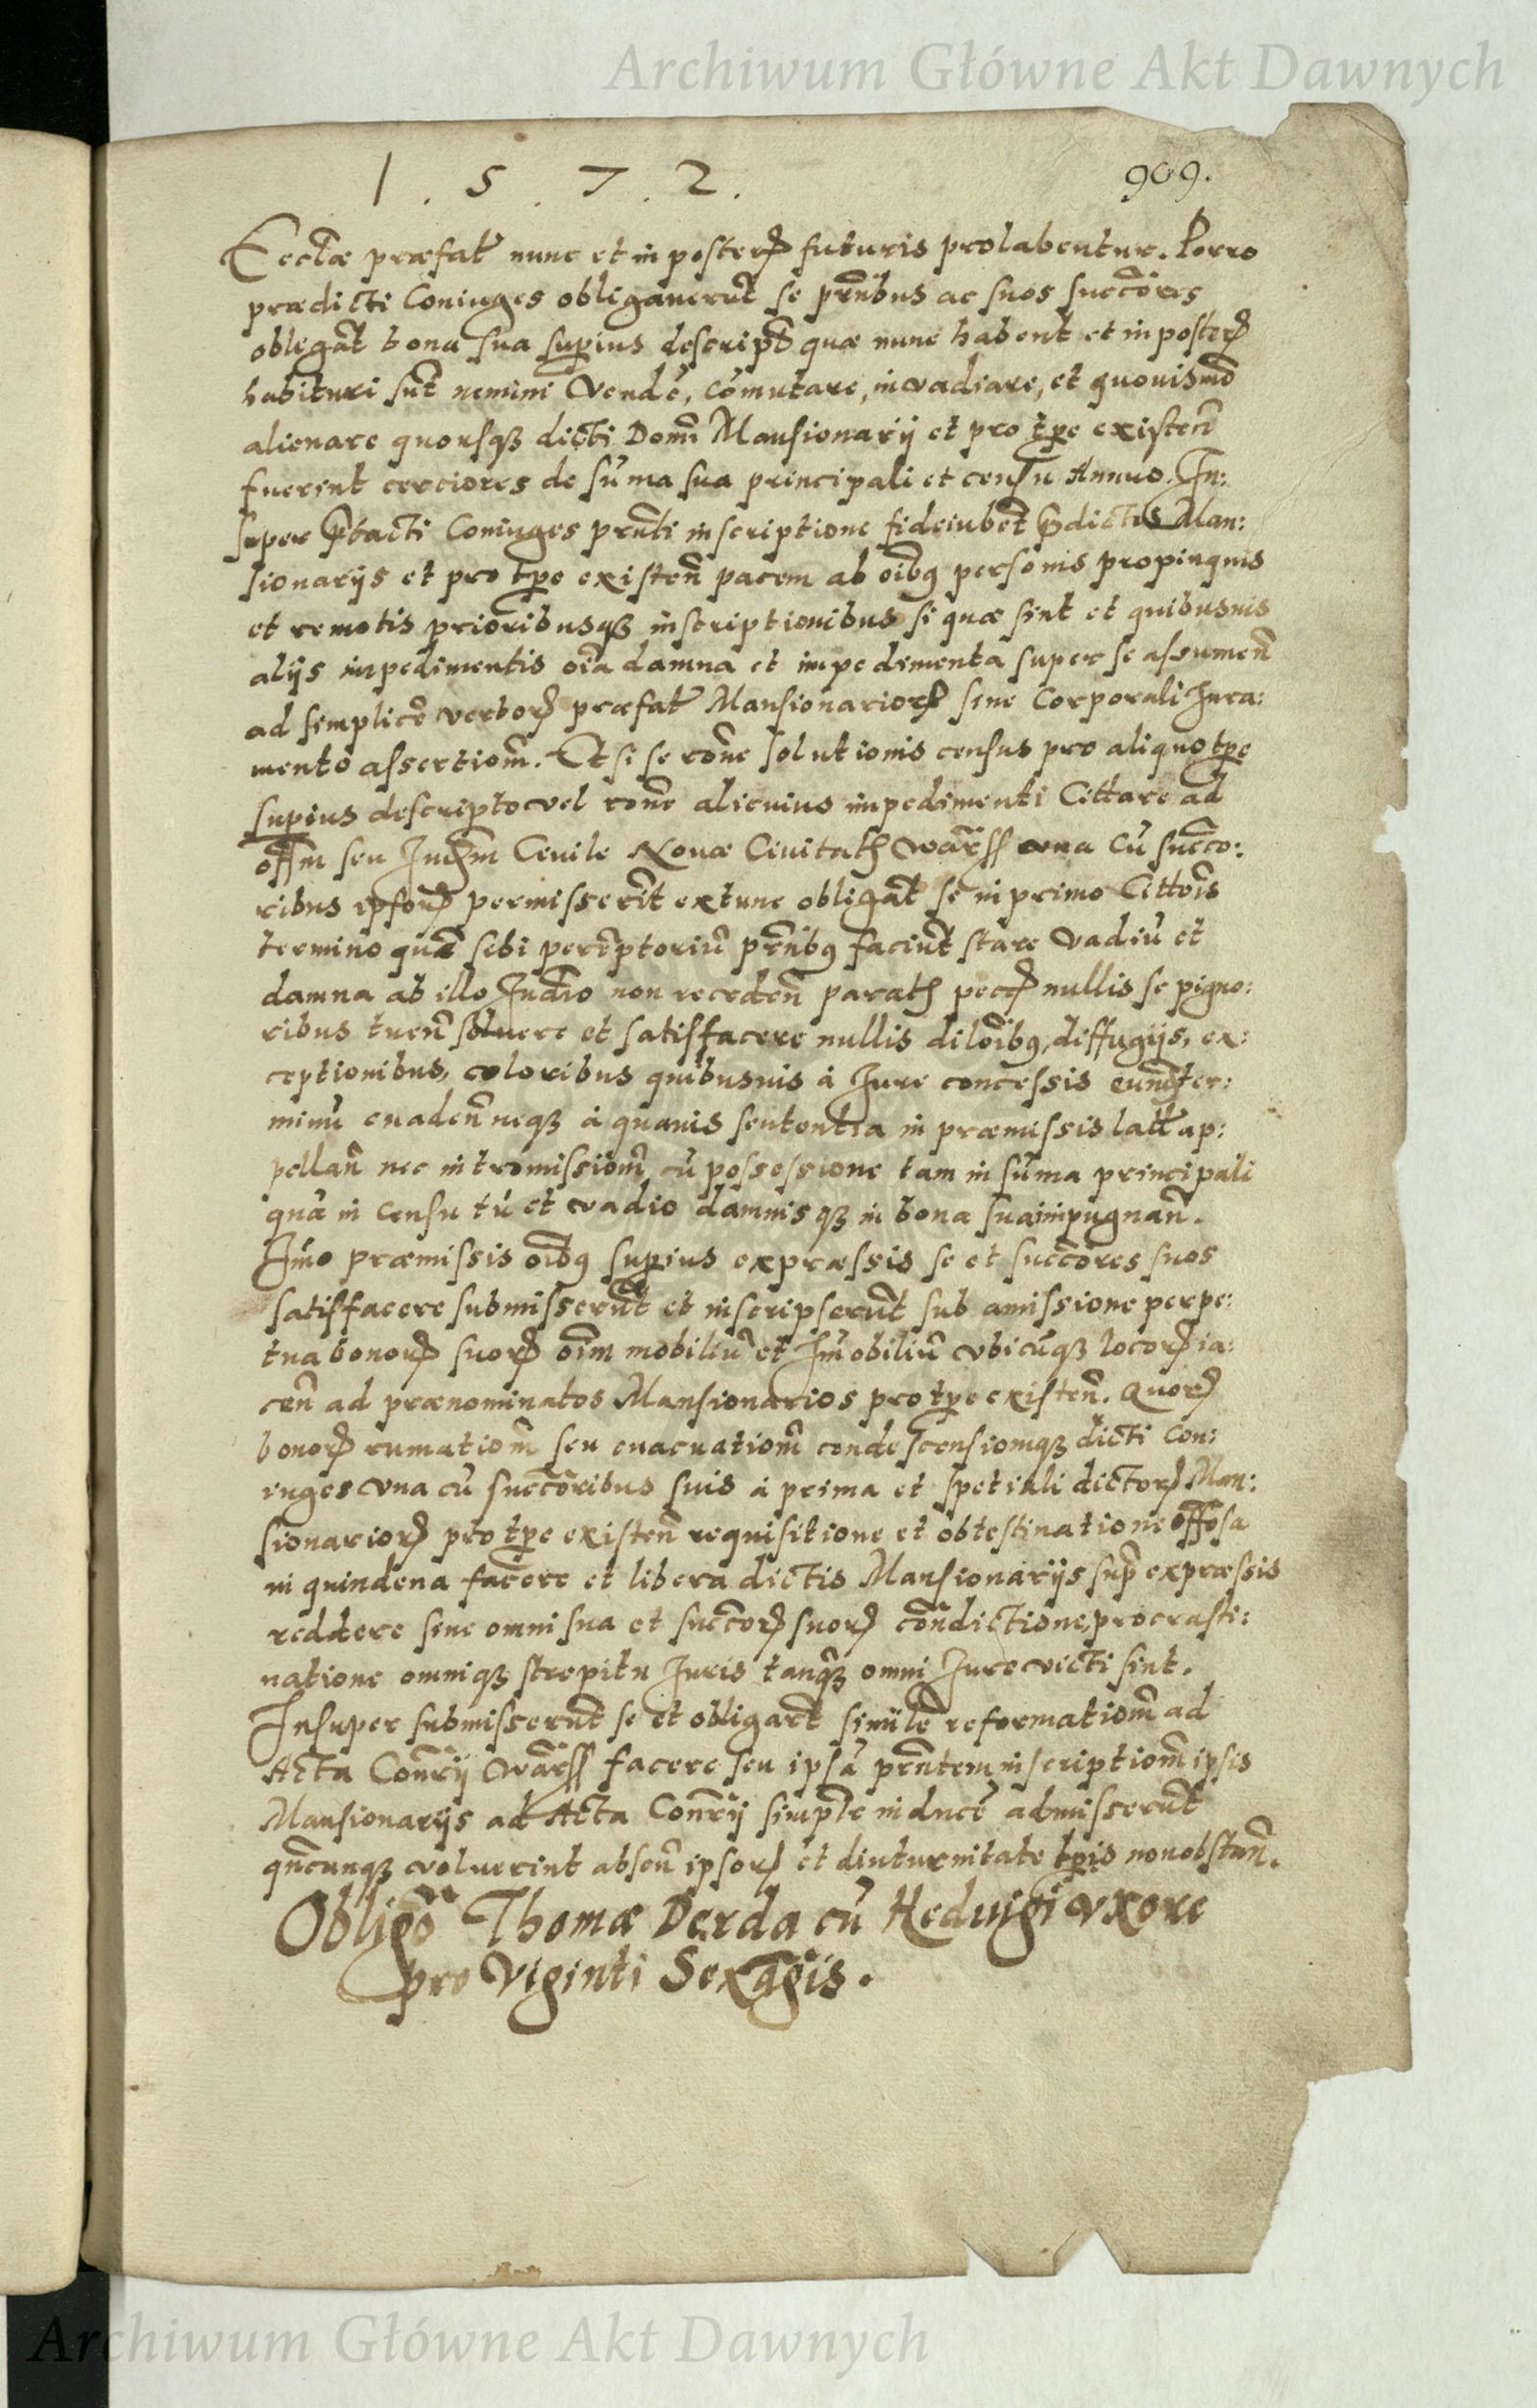 Archiwum Główne Akt Dawnych
1 . 5 . 7 . 2 .
909.
Eccłæ præfat nunc et in poster futuris prolabentur. Porro
prædicti Coniuges obligauerūt se pñtibus ac suos succõres
obligāt bona sua superius descript quæ nunc habent et in poster
habituri sūt nemini Vendẽ, cõmutare, inuadiare, et quouismõ
alienare quousq dicti Domi Mansionarij et pro tpe existeñ
fuerint cerciores de sūma sua principali et censu Annuo. In:
super ptacti Coniuges pñti inscriptione fideiubēt pdictis Man:
sionarijs et pro tpe existeñ pacem ab oibq personis propinquis
et remotis prioribusq inscriptionibus si quæ sint et quibusuis
alijs impedimentis oia damna et impedimenta super se assumeñ
ad simplicẽ verbor præfat Mansionarior sine Corporali Iura:
mento assertiom̃. Et si se rõne solutionis census pro aliquo tpe
superius descripto vel rõne alicuius impedimenti Cittare ad
offm seu Iudm Ciuile Nouæ Ciuitat Warss vna cū succo:
ribus ipsor permisserīt extunc obligāt se in primo Cittõis
termino quē sibi perēptoriū pñtibq faciūt stare Vadiū et
damna ab illo Iudio non recedeñ parat pec nullis se pigno:
ribus tueñ soluere et satisfacere nullis dilõibq, diffugijs, ex:
ceptionibus, coloribus quibusuis à Iure concessis eundter:
minū euadeñ neq à quauis sententia in præmissis latt ap:
pellañ nec intromissiom̃ cū possessione tam in sūma principali
quā in censu tū et vadio damnis q in bona sua impugnañ.
Imo præmissis oibq superius expræssis se et succõres suos
satisfacere submisserūt et inscripserūt sub amissione perpe:
tua bonor suor oim mobiliū et Imobiliū vbicūq locor ia:
ceñ ad prænominatos Mansionarios pro tpe existeñ. Quor
bonor rumatiom̃ seu euacuatiom̃ condescensiomq dicti Con:
iuges vna cū succõribus suis à prima et spetiali dictor Man:
sionarior pro tpe existeñ requisitione et obtestinatione offosa
in quindena facere et libera dictis Mansionarijs sup expræssis
reddere sine omni sua et succor suor cõndictione, procrasti:
natione omniq strepitu Iuris tanq omni Iure victi sint.
Insuper submisserūt se et obligarūt similē reformatiom̃ ad
Acta Conrij Warss facere seu ipsā pñtem inscriptiom̃ ipsis
Mansionarijs ad Acta Conrij simple inducẽ admisserūt
qñcunq voluerint abseñ ipsor et diuturnitate tpis non obstañ.
Obligõ Thomæ Derda cū Heduigi vxore
pro Viginti Sexagis.
Archiwum Główne Akt Dawnych